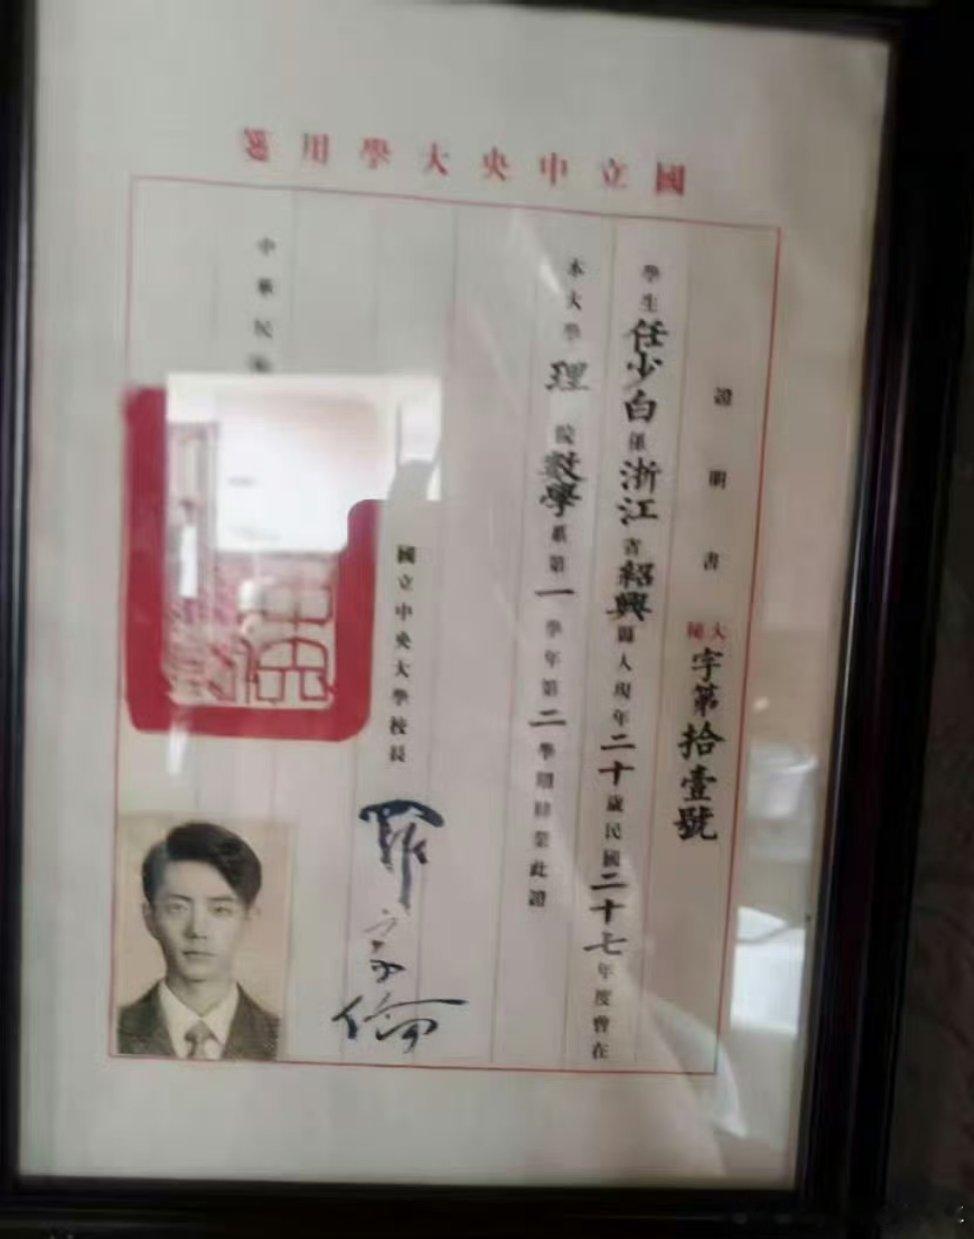 國立中央大學用箋
證明書 大 字第拾壹號
學生任少白係浙江省紹興縣人現年二十歲民國二十七年度曾在
本大學理院數學系第一學年第二學期肄業此證
國立中央大學校長
羅家倫
中華民